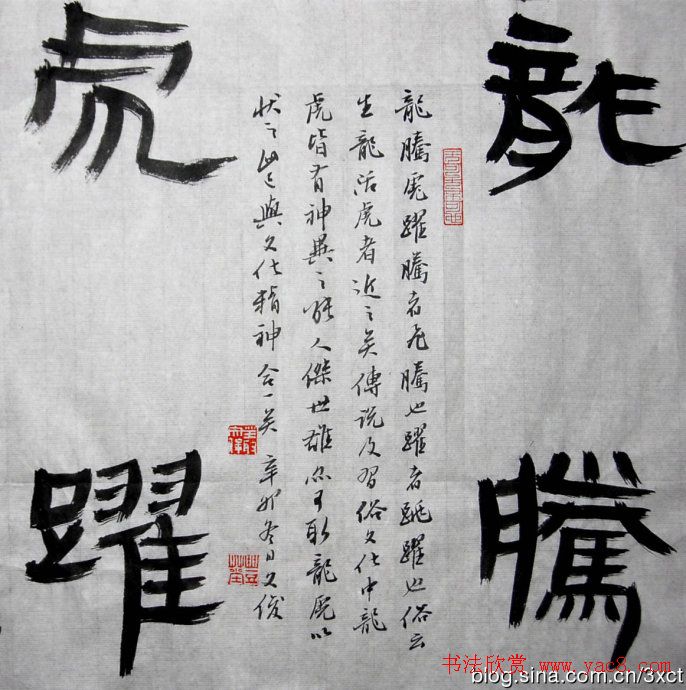 龍騰
虎躍
龍騰虎躍騰者飛騰也躍者跳躍也俗云
生龍活虎者近之矣傳說及習俗文化中龍
虎皆有神異之能人傑世雄亦可取龍虎以
狀之此與文化精神合一矣辛卯冬日文俊
书法欣赏 www.yac8.com
blog.sina.com.cn/3xct